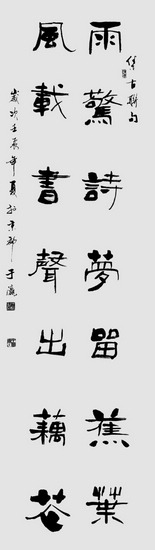 古聯句
雨驚詩夢留蕉葉
風載書聲出藕花
歲次壬辰年夏於京郊于